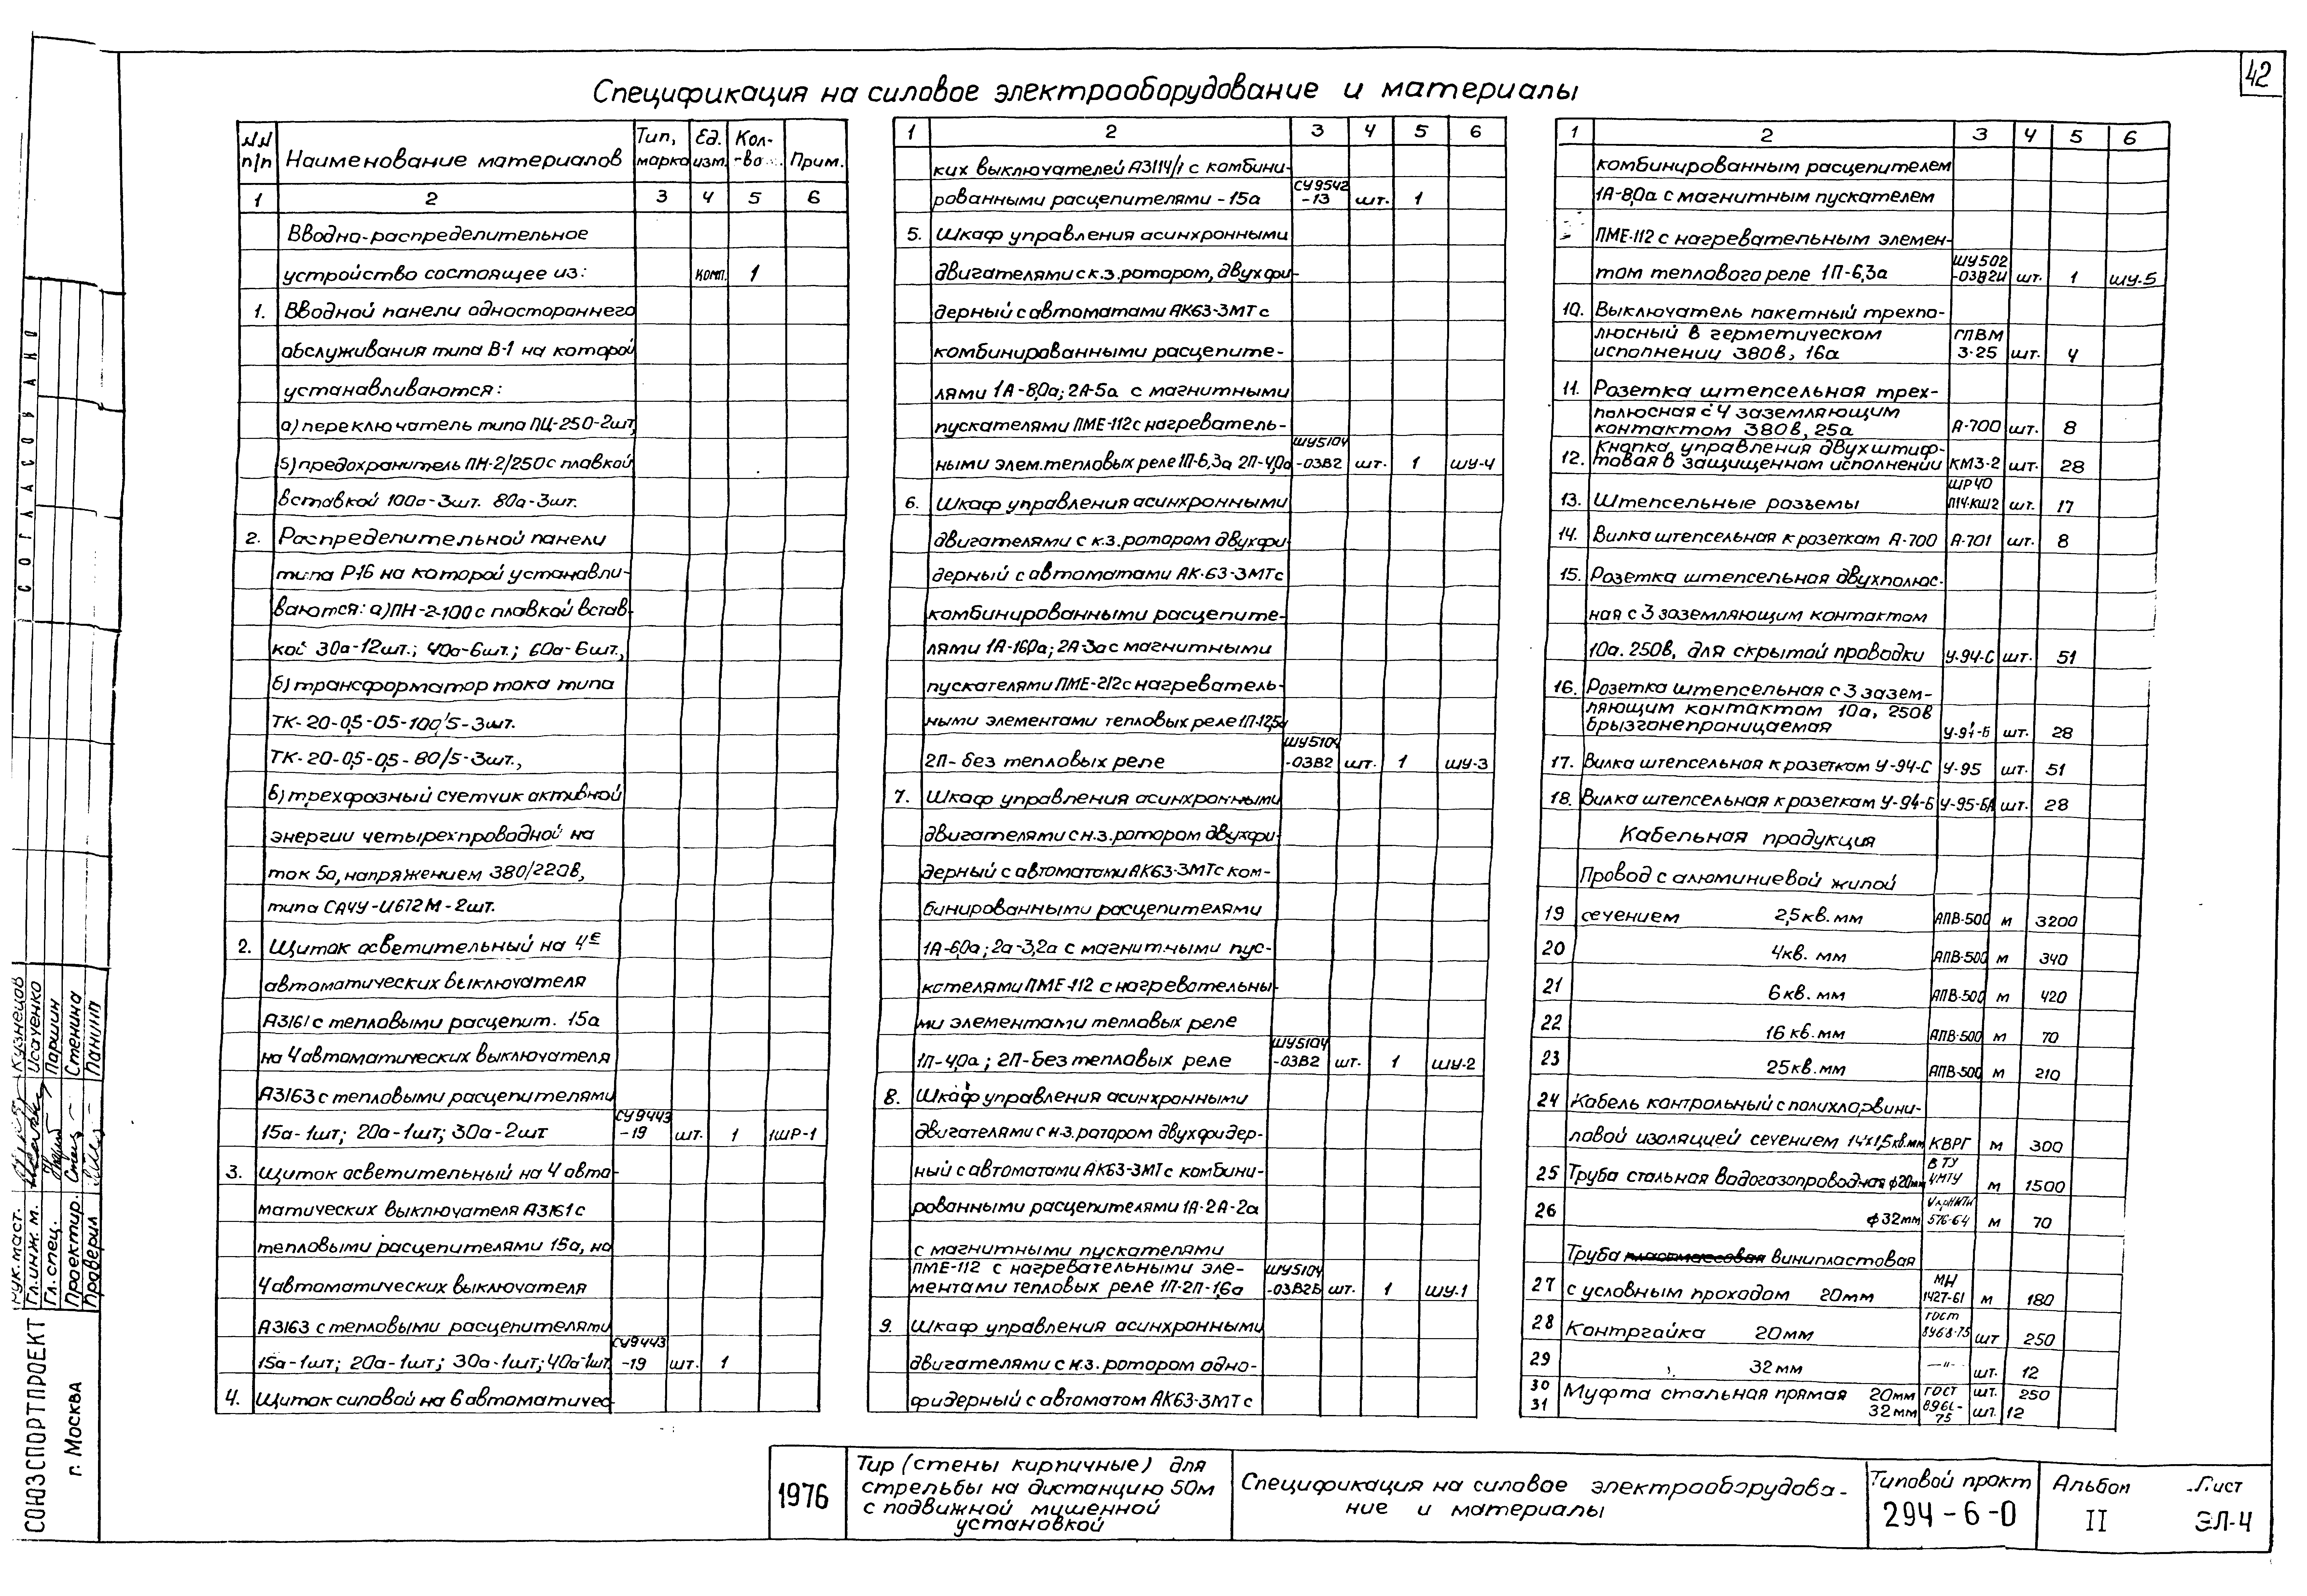 42
Спецификация на силовое электрооборудование и материалы
№№ п/п Наименование материалов Тип, марка Ед. изм. Кол-во Прим.
1 2 3 4 5 6
Вводно-распределительное
устройство состоящее из: комп. 1
1. Вводной панели одностороннего
обслуживания типа В-1 на которой
устанавливаются:
а) переключатель типа ПЦ-250-2шт,
б) предохранитель ПН-2/250 с плавкой
вставкой 100а-3шт. 80а-3шт.
2. Распределительной панели
типа Р-16 на которой устанавли-
ваются: а) ПН-2-100 с плавкой встав-
кой 30а-12шт.; 40а-6шт.; 60а-6шт.,
б) трансформатор тока типа
ТК-20-0,5-05-100/5-3шт.
ТК-20-0,5-0,5-80/5-3шт.,
в) трехфазный счетчик активной
энергии четырехпроводной на
ток 5а, напряжением 380/220в,
типа СА4У-И672М-2шт.
2. Щиток осветительный на 4е
автоматических выключателя
А3161 с тепловыми расцепит. 15а
на 4 автоматических выключателя
А3163 с тепловыми расцепителями
15а-1шт; 20а-1шт; 30а-2шт СУ9443-19 шт. 1 1ШР-1
3. Щиток осветительный на 4 авто-
матических выключателя А3161 с
тепловыми расцепителями 15а, на
4 автоматических выключателя
А3163 с тепловыми расцепителями
15а-1шт; 20а-1шт; 30а-1шт; 40а-1шт. СУ9443-19 шт. 1
4. Щиток силовой на 6 автоматичес-
1 2 3 4 5 6
ких выключателей А3114/1 с комбини-
рованными расцепителями-15а СУ9542-13 шт. 1
5. Шкаф управления асинхронными
двигателями с к.з. ротором, двухфи-
дерный с автоматами АК63-3МТ с
комбинированными расцепите-
лями 1А-8,0а; 2А-5а с магнитными
пускателями ПМЕ-112 с нагреватель-
ными элем. тепловых реле 1П-6,3а 2П-4,0а ШУ5104-03В2 шт. 1 ШУ-4
6. Шкаф управления асинхронными
двигателями с к.з. ротором двухфи-
дерный с автоматами АК-63-3МТ с
комбинированными расцепите-
лями 1А-16,0а; 2А-3а с магнитными
пускателями ПМЕ-212 с нагреватель-
ными элементами тепловых реле 1П-12,5а
2П-без тепловых реле ШУ5104-03В2 шт. 1 ШУ-3
7. Шкаф управления асинхронными
двигателями с н.з. ротором двухфи-
дерный с автоматами АК63-3МТ с ком-
бинированными расцепителями
1А-6,0а; 2а-3,2а с магнитными пус-
кателями ПМЕ-112 с нагревательны-
ми элементами тепловых реле
1П-4,0а; 2П-без тепловых реле ШУ5104-03В2 шт. 1 ШУ-2
8. Шкаф управления асинхронными
двигателями с н.з. ротором двухфидер-
ный с автоматами АК63-3МТ с комбини-
рованными расцепителями 1А-2А-2а
с магнитными пускателями
ПМЕ-112 с нагревательными эле-
ментами тепловых реле 1П-2П-1,6а ШУ5104-03В2Б шт. 1 ШУ-1
9. Шкаф управления асинхронными
двигателями с н.з. ротором одно-
фидерный с автоматом АК63-3МТ с
1 2 3 4 5 6
комбинированным расцепителем
1А-8,0а с магнитным пускателем
ПМЕ-112 с нагревательным элемен-
том теплового реле 1П-6,3а ШУ502-03В2И шт. 1 ШУ-5
10. Выключатель пакетный трехпо-
люсный в герметическом
исполнении 380в, 16а ГПВМ 3-25 шт. 4
11. Розетка штепсельная трех-
полюсная с 4 заземляющим
контактом 380в, 25а А-700 шт. 8
Кнопка управления двухштиф-
12. товая в защищенном исполнении КМЗ-2 шт. 28
13. Штепсельные розъемы ШР40 П14.КШ2 шт. 17
14. Вилка штепсельная к розеткам А-700 А-701 шт. 8
15. Розетка штепсельная двухполюс-
ная с 3 заземляющим контактом
10а. 250в, для скрытой проводки У-94-С шт. 51
16. Розетка штепсельная с 3 зазем-
ляющим контактом 10а, 250в
брызгонепроницаемая У-94-Б шт. 28
17. Вилка штепсельная к розеткам У-94-С У-95 шт. 51
18. Вилка штепсельная к розеткам У-94-Б У-95-БА шт. 28
Кабельная продукция
Провод с алюминиевой жилой
19 сечением 2,5кв.мм АПВ-500 м 3200
20 4кв. мм АПВ-500 м 340
21 6кв. мм АПВ-500 м 420
22 16кв. мм АПВ-500 м 70
23 25кв. мм АПВ-500 м 210
24 Кабель контрольный с полихлорвини-
ловой изоляцией сечением 14х1,5кв.мм КВРГ м 300
25 Труба стальная водогазопроводная ф20мм ВТУ ЧМТУ м 1500
26 ф32мм УкрНИТИ 576-64 м 70
Труба пластмассовая винипластовая
27 с условным проходом 20мм МН 1427-61 м 180
28 Контргайка 20мм ГОСТ 8968-75 шт 250
29 32мм —"— шт. 12
30 Муфта стальная прямая 20мм ГОСТ шт. 250
31 32мм 8966-75 шт. 12
СОГЛАСОВАНО
Рук.маст. Кузнецов
Гл.инж.м. Исаченко
Гл.спец. Паршин
Проектир. Стенина
Проверил Панин
СОЮЗСПОРТПРОЕКТ
г. Москва
1976
Тир (стены кирпичные) для
стрельбы на дистанцию 50м
с подвижной мишенной
установкой
Спецификация на силовое электрооборудова-
ние и материалы
Типовой проект
294-6-0
Альбом
II
Лист
ЭЛ-4